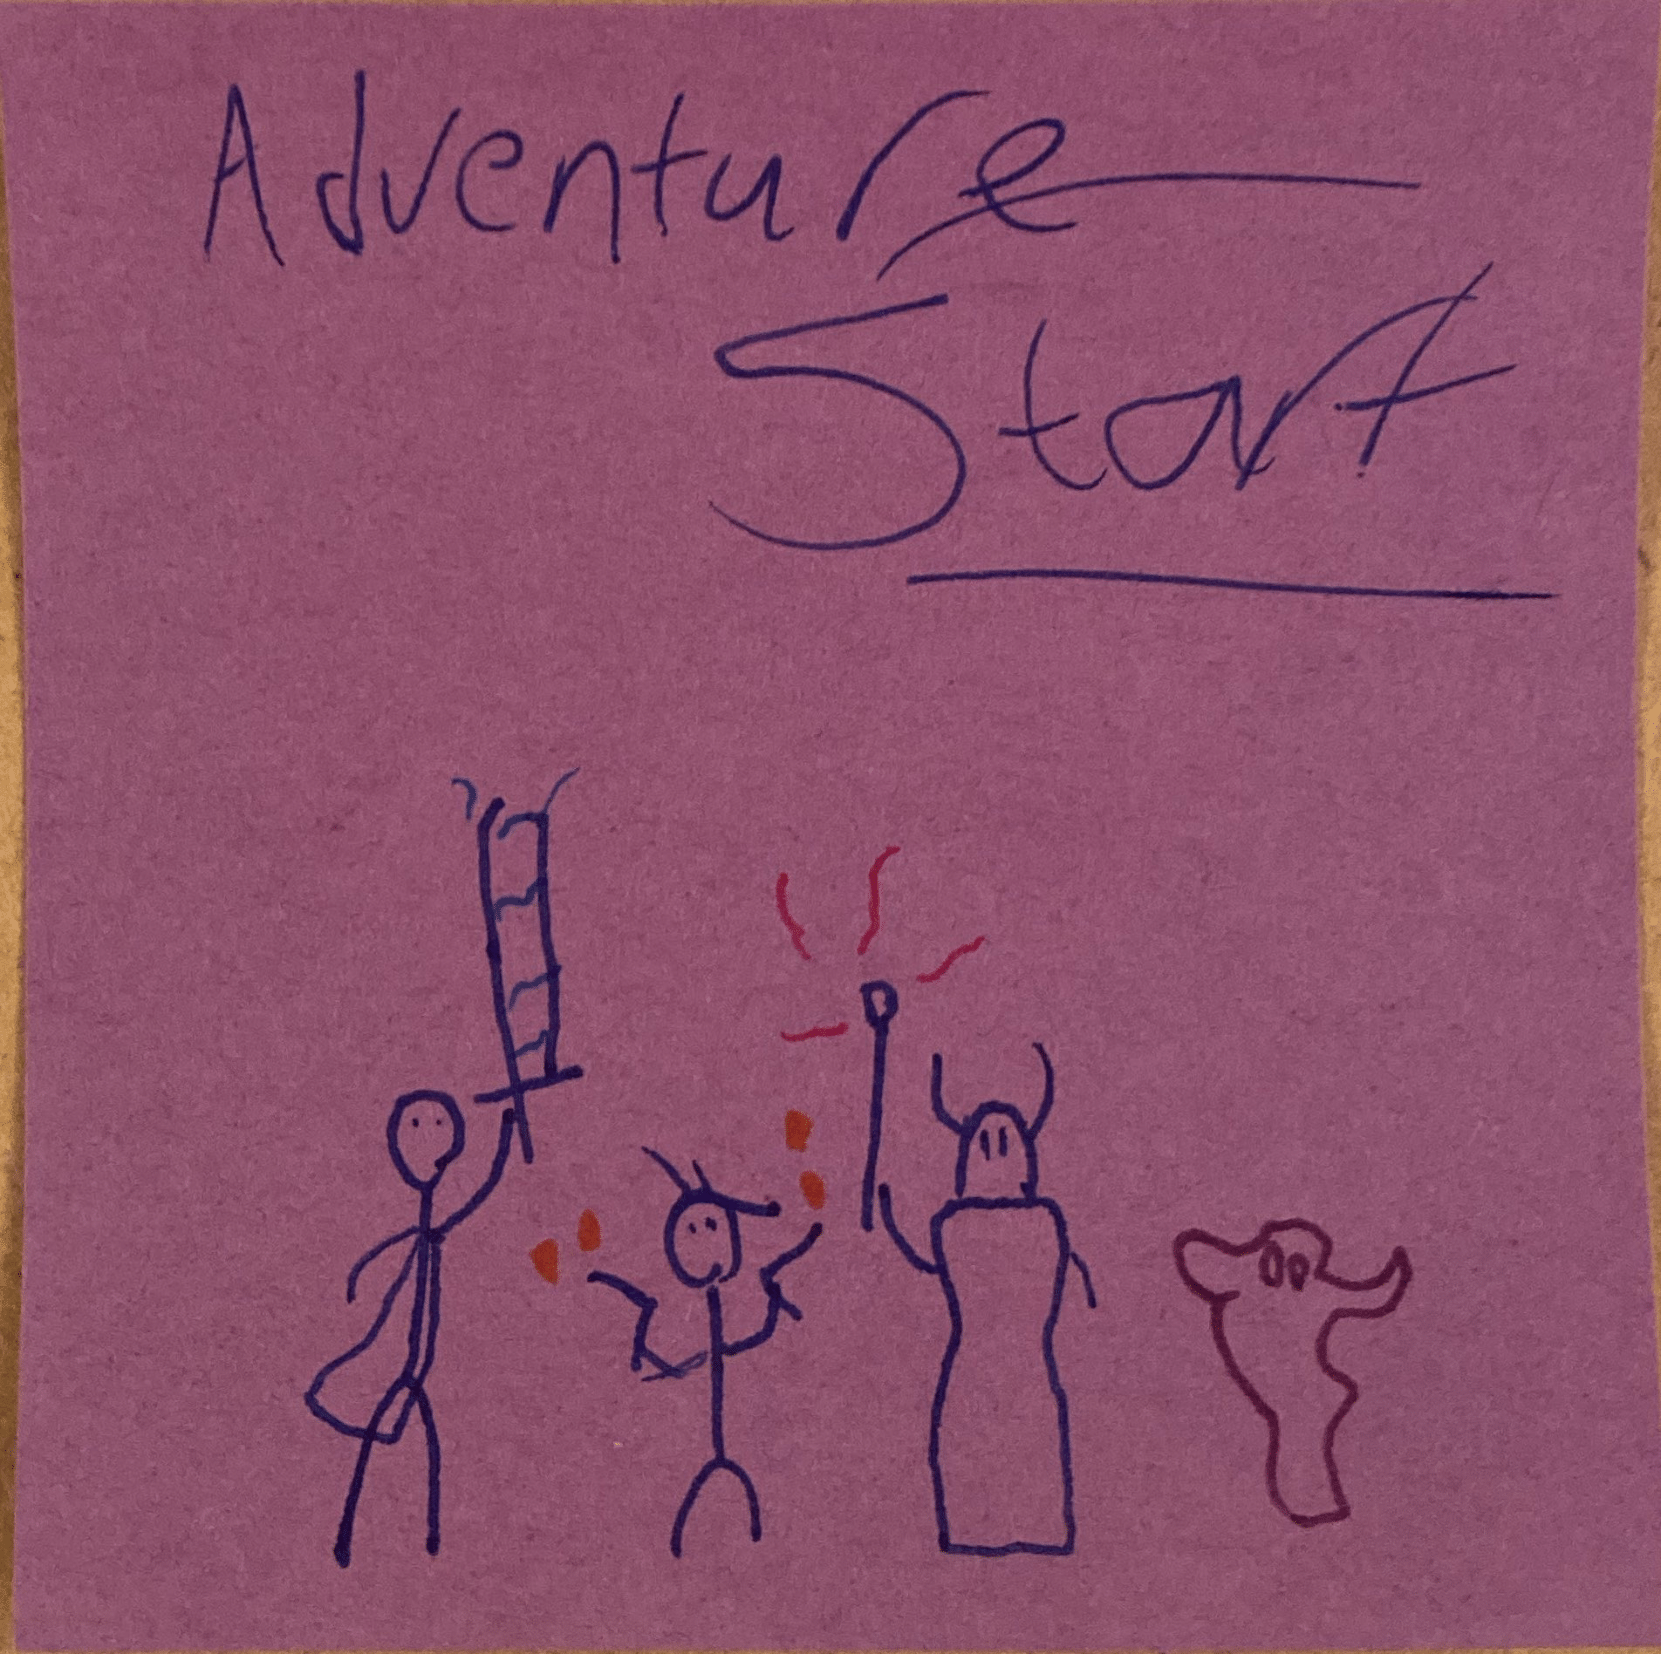 Adventure
Start